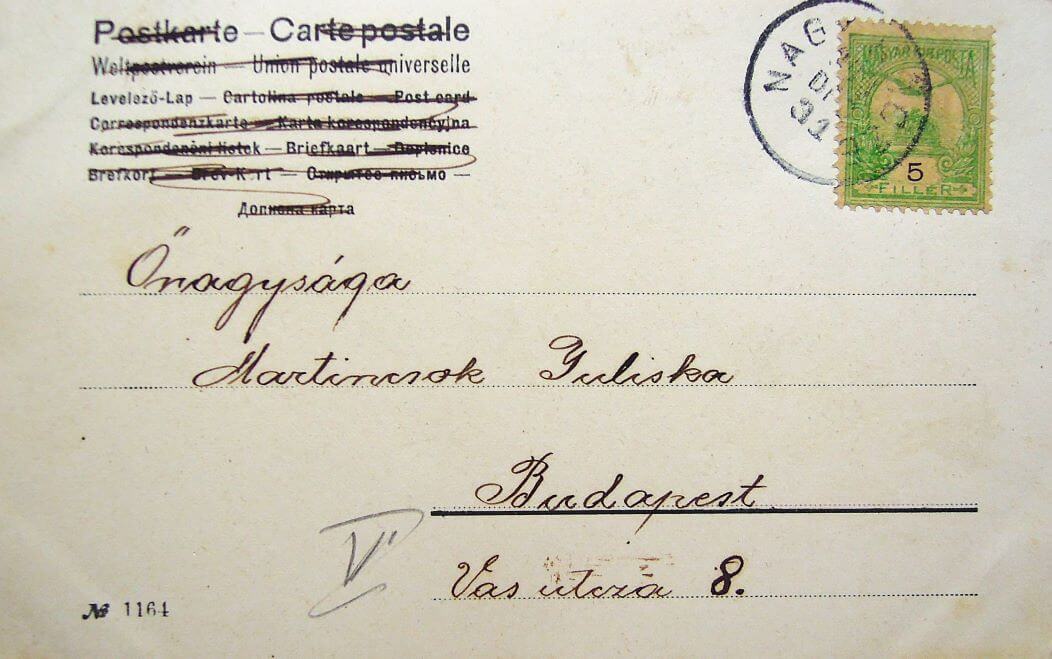 Postkarte — Carte postale
Weltpostverein — Union postale universelle
Levelező-Lap — Cartolina postale — Post card
Correspondenzkarte — Karta korespondencyjna
Korespondenční lístek — Briefkaart — Dopisnice
Brefkort — Brev-Kort — Открытое письмо —
Дописна карта
NAGY
31
MAGYAR KIR. POSTA
5
FILLÉR
Őnagysága
Martincsok Juliska
Budapest
V
Vas utcza 8.
№ 1164